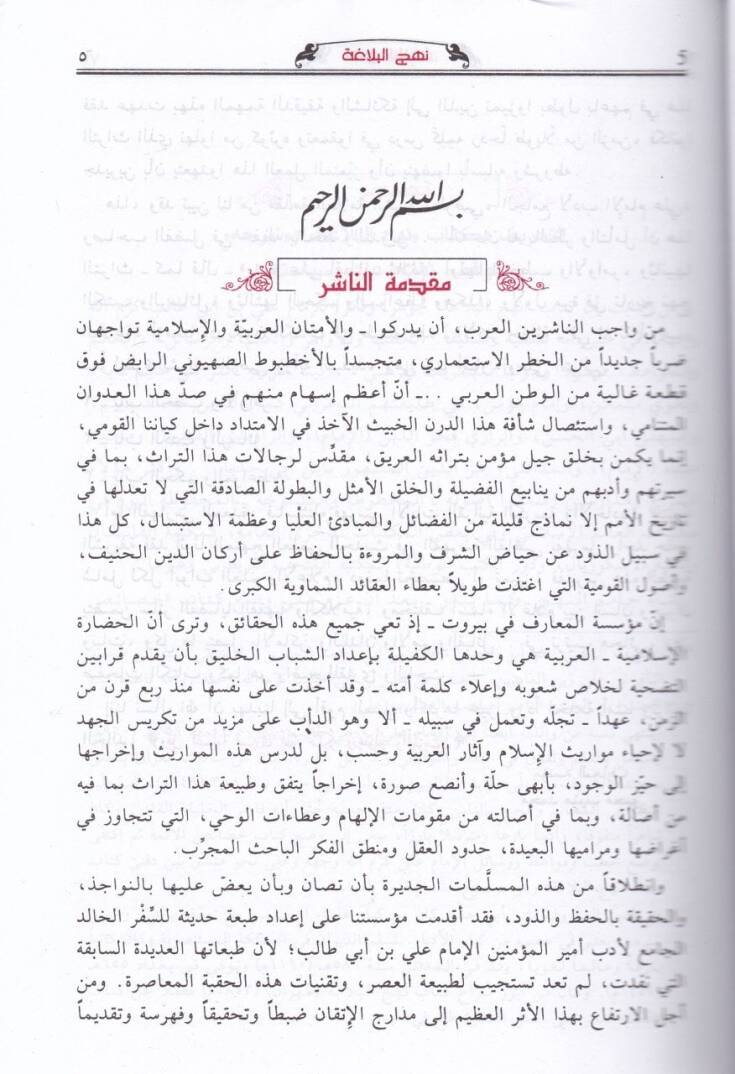 نهج البلاغة
٥
بسم الله الرحمن الرحيم
مقدمة الناشر
من واجب الناشرين العرب، أن يدركوا ـ والأمتان العربيّة والإسلامية تواجهان
ضرباً جديداً من الخطر الاستعماري، متجسداً بالأخطبوط الصهيوني الرابض فوق
قطعة غالية من الوطن العربي ..ـ أنّ أعظم إسهام منهم في صدّ هذا العدوان
المتنامي، واستئصال شأفة هذا الدرن الخبيث الآخذ في الامتداد داخل كياننا القومي،
إنما يكمن بخلق جيل مؤمن بتراثه العريق، مقدِّس لرجالات هذا التراث، بما في
سيرتهم وأدبهم من ينابيع الفضيلة والخلق الأمثل والبطولة الصادقة التي لا تعدلها في
تاريخ الأمم إلا نماذج قليلة من الفضائل والمبادئ العليا وعظمة الاستبسال، كل هذا
في سبيل الذود عن حياض الشرف والمروءة بالحفاظ على أركان الدين الحنيف،
وأصول القومية التي اغتذت طويلاً بعطاء العقائد السماوية الكبرى.
إنّ مؤسسة المعارف في بيروت ـ إذ تعي جميع هذه الحقائق، وترى أنّ الحضارة
الإسلامية ـ العربية هي وحدها الكفيلة بإعداد الشباب الخليق بأن يقدم قرابين
التضحية لخلاص شعوبه وإعلاء كلمة أمته ـ وقد أخذت على نفسها منذ ربع قرن من
الزمن، عهداً ـ تجلّه وتعمل في سبيله ـ ألا وهو الدأب على مزيد من تكريس الجهد
لا لإحياء مواريث الإسلام وآثار العربية وحسب، بل لدرس هذه المواريث وإخراجها
إلى حيّز الوجود، بأبهى حلّة وأنصع صورة، إخراجاً يتفق وطبيعة هذا التراث بما فيه
من أصالة، وبما في أصالته من مقومات الإلهام وعطاءات الوحي، التي تتجاوز في
أغراضها ومراميها البعيدة، حدود العقل ومنطق الفكر الباحث المجرِّب.
وانطلاقاً من هذه المسلَّمات الجديرة بأن تصان وبأن يعضّ عليها بالنواجذ،
والحقيقة بالحفظ والذود، فقد أقدمت مؤسستنا على إعداد طبعة حديثة للسِّفْر الخالد
الجامع لأدب أمير المؤمنين الإمام علي بن أبي طالب؛ لأن طبعاتها العديدة السابقة
التي نفدت، لم تعد تستجيب لطبيعة العصر، وتقنيات هذه الحقبة المعاصرة. ومن
أجل الارتفاع بهذا الأثر العظيم إلى مدارج الإتقان ضبطاً وتحقيقاً وفهرسة وتقديماً